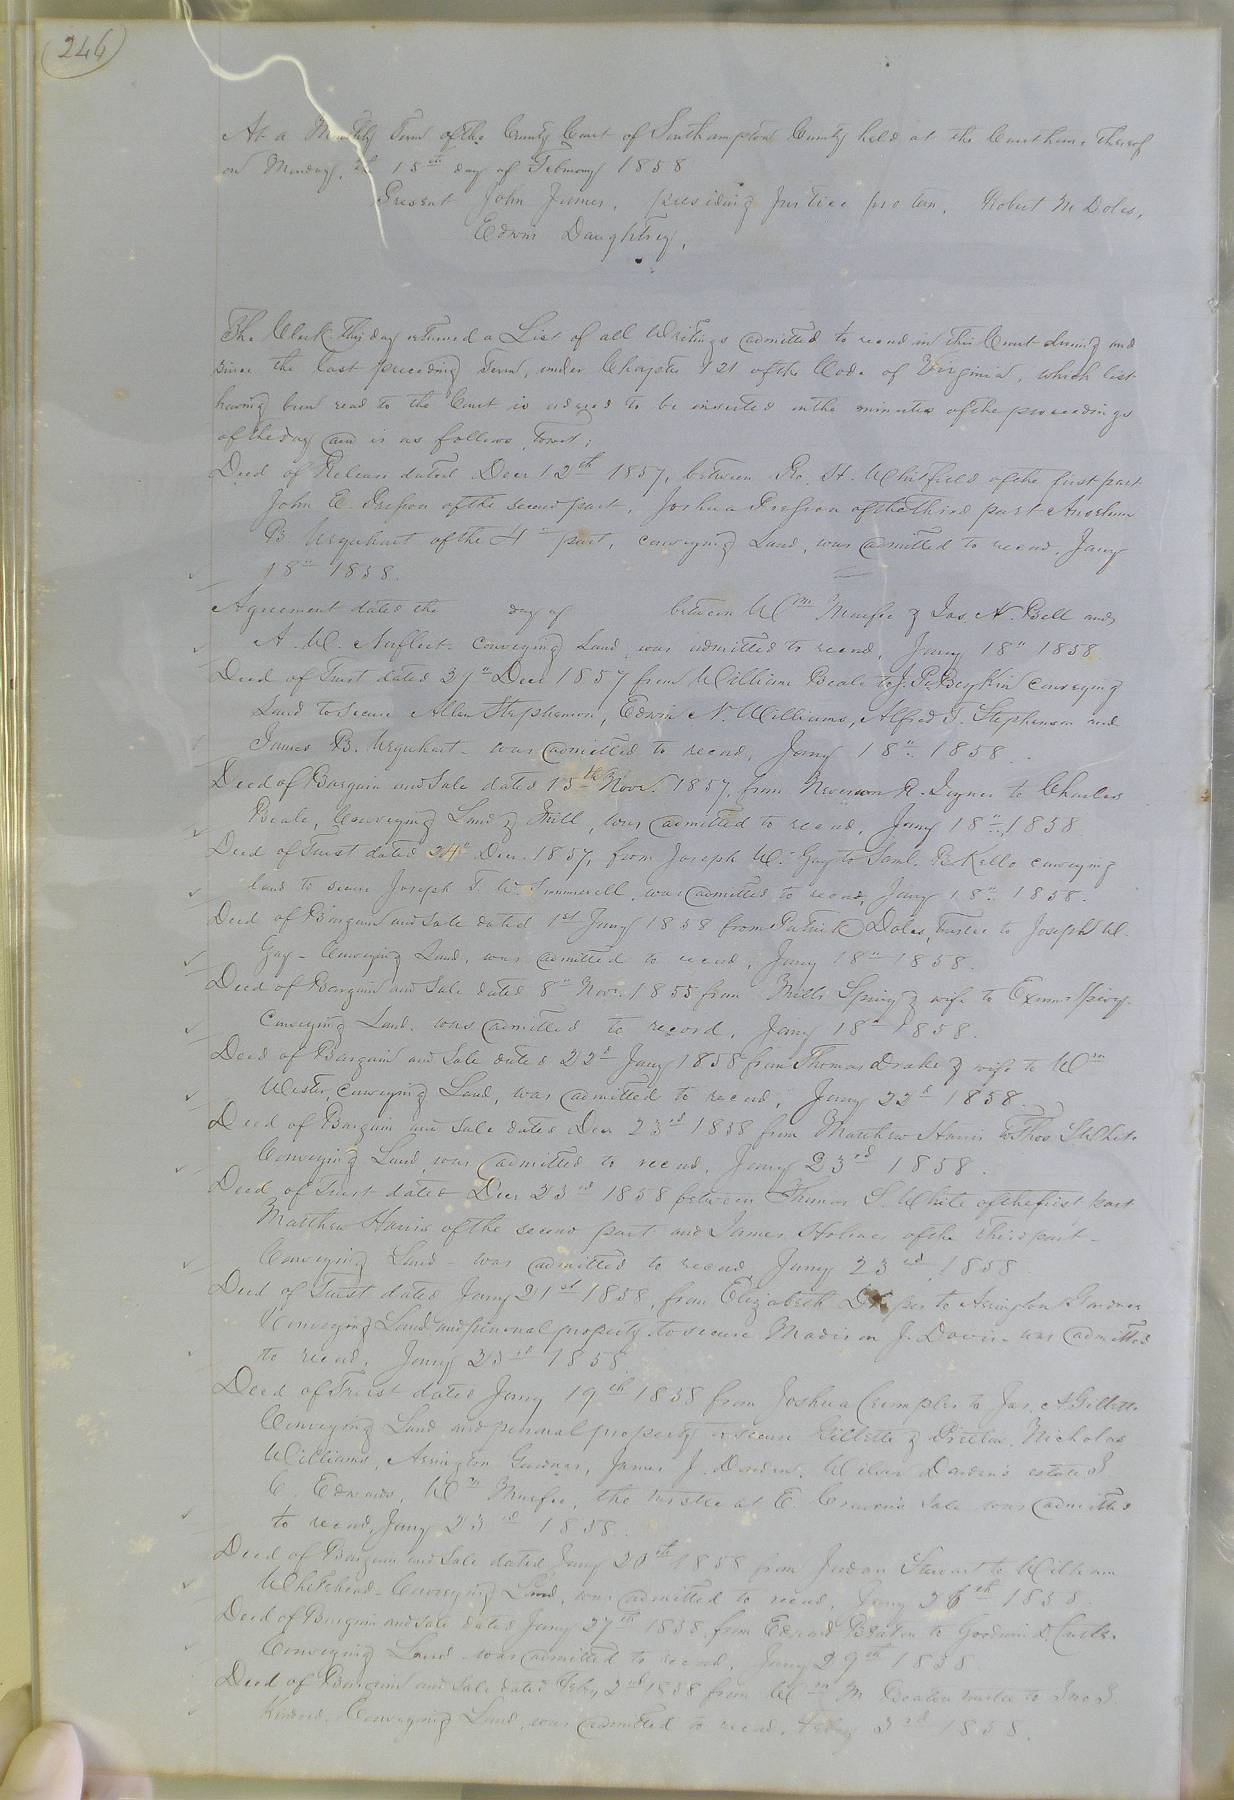 246
At a Monthly Term of the County Court of Southampton County held at the Courthouse thereof
on Monday, the 15th day of February 1858
Present John James, presiding Justice pro tem, Robert M Doles,
Edwin Daughtrey,
The Clerk this day returned a List of all Writings admitted to record in this Court during and
since the last preceding Term, under Chapter 121 of the Code of Virginia, which list
having been read to the Court is ordered to be inserted in the minutes of the proceedings
of the day and is as follows, towit;
Deed of Release dated Decr 12th 1857, between Geo. H. Whitfield of the first part
John E. Presson of the second part, Joshua Presson of the third part Anselm
B. Urquhart of the 4th part, conveying Land, was admitted to record, Jany
18th 1858.
Agreement dated the day of between Wm Murfee & Jas. N. Bell and
A. W. Norfleet conveying Land was admitted to record, Jany 18" 1858
Deed of Trust dated 31" Decr 1857 from William Beale to J. P. Boykin conveying
Land to secure Allen Stephenson, Edwin N. Williams, Alfred T. Stephenson and
James B. Urquhart - was admitted to record, Jany 18" 1858.
Deed of Bargain and Sale dated 15th Novr. 1857, from A. Joyner to Charles
Beale, Conveying Land & Mill, was admitted to record, Jany 18" 1858
Deed of Trust dated 24" Decr 1857, from Joseph W. Gay to Saml. B Kello conveying
land to secure Joseph T. W. Summerell, was admitted to record, Jany 18" 1858.
Deed of Bargain and Sale dated 1st Jany 1858 from Patrick Doles, Trustee to Joseph W.
Gay - Conveying Land, was admitted to record, Jany 18" 1858.
Deed of Bargain and Sale dated 8" Novr 1855 from Mills Spivey & wife to Exum Spivey
Conveying Land, was admitted to record, Jany 18" 1858.
Deed of Bargain and Sale dated 22d Jany 1858 from Thomas Drake & wife to Wm
Wester, conveying Land, was admitted to record, Jany 22d 1858.
Deed of Bargain and Sale dated Decr 23rd 1858 from Matthew Harris to Thos. S. White
Conveying Land was admitted to record, Jany 23rd 1858.
Deed of Trust dated Decr 23rd 1858 between Thomas S. White of the first part
Matthew Harris of the second part and James Holmes of the third part -
Conveying Land - was admitted to record Jany 23rd 1858
Deed of Trust dated Jany 21st 1858, from Elizabeth to Arrington Gardner
Conveying Land and personal property to secure Madison J. Davis - was admitted
to record, Jany 23rd 1858
Deed of Trust dated Jany 19th 1858 from Joshua Crumpler to Jas. A Gillette
Conveying Land and personal property to secure Gillette & Pretlow, Nicholas
Williams, Arrington Gardner, James J. Darden, Darden's estate J.
C. Edwards, Wm Murfee, the trustee at E. sale was admitted
to record, Jany 23rd 1858.
Deed of Bargain and Sale dated Jany 20th 1858 from Jordan Stewart to William
Whitehead - Conveying Land, was admitted to record, Jany 26th 1858.
Deed of Bargain and Sale dated Jany 27th 1858, from Edward Beaton to Goodwin
Conveying Land - was admitted to record, Jany 29th 1858
Deed of Bargain and Sale dated Feby 2nd 1858 from Wm M Beaton trustee to Jno J.
Kindred, Conveying Land, was admitted to record, Feby 3rd 1858.